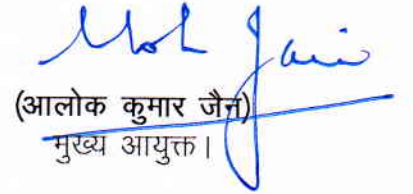 Alok Jain
(आलोक कुमार जैन)
मुख्य आयुक्त।